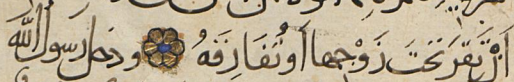 أَنْ تَقَرَّ تَحْتَ زَوْجِهَا أَوْ تُفَارِقَهُ ودخل رسول الله